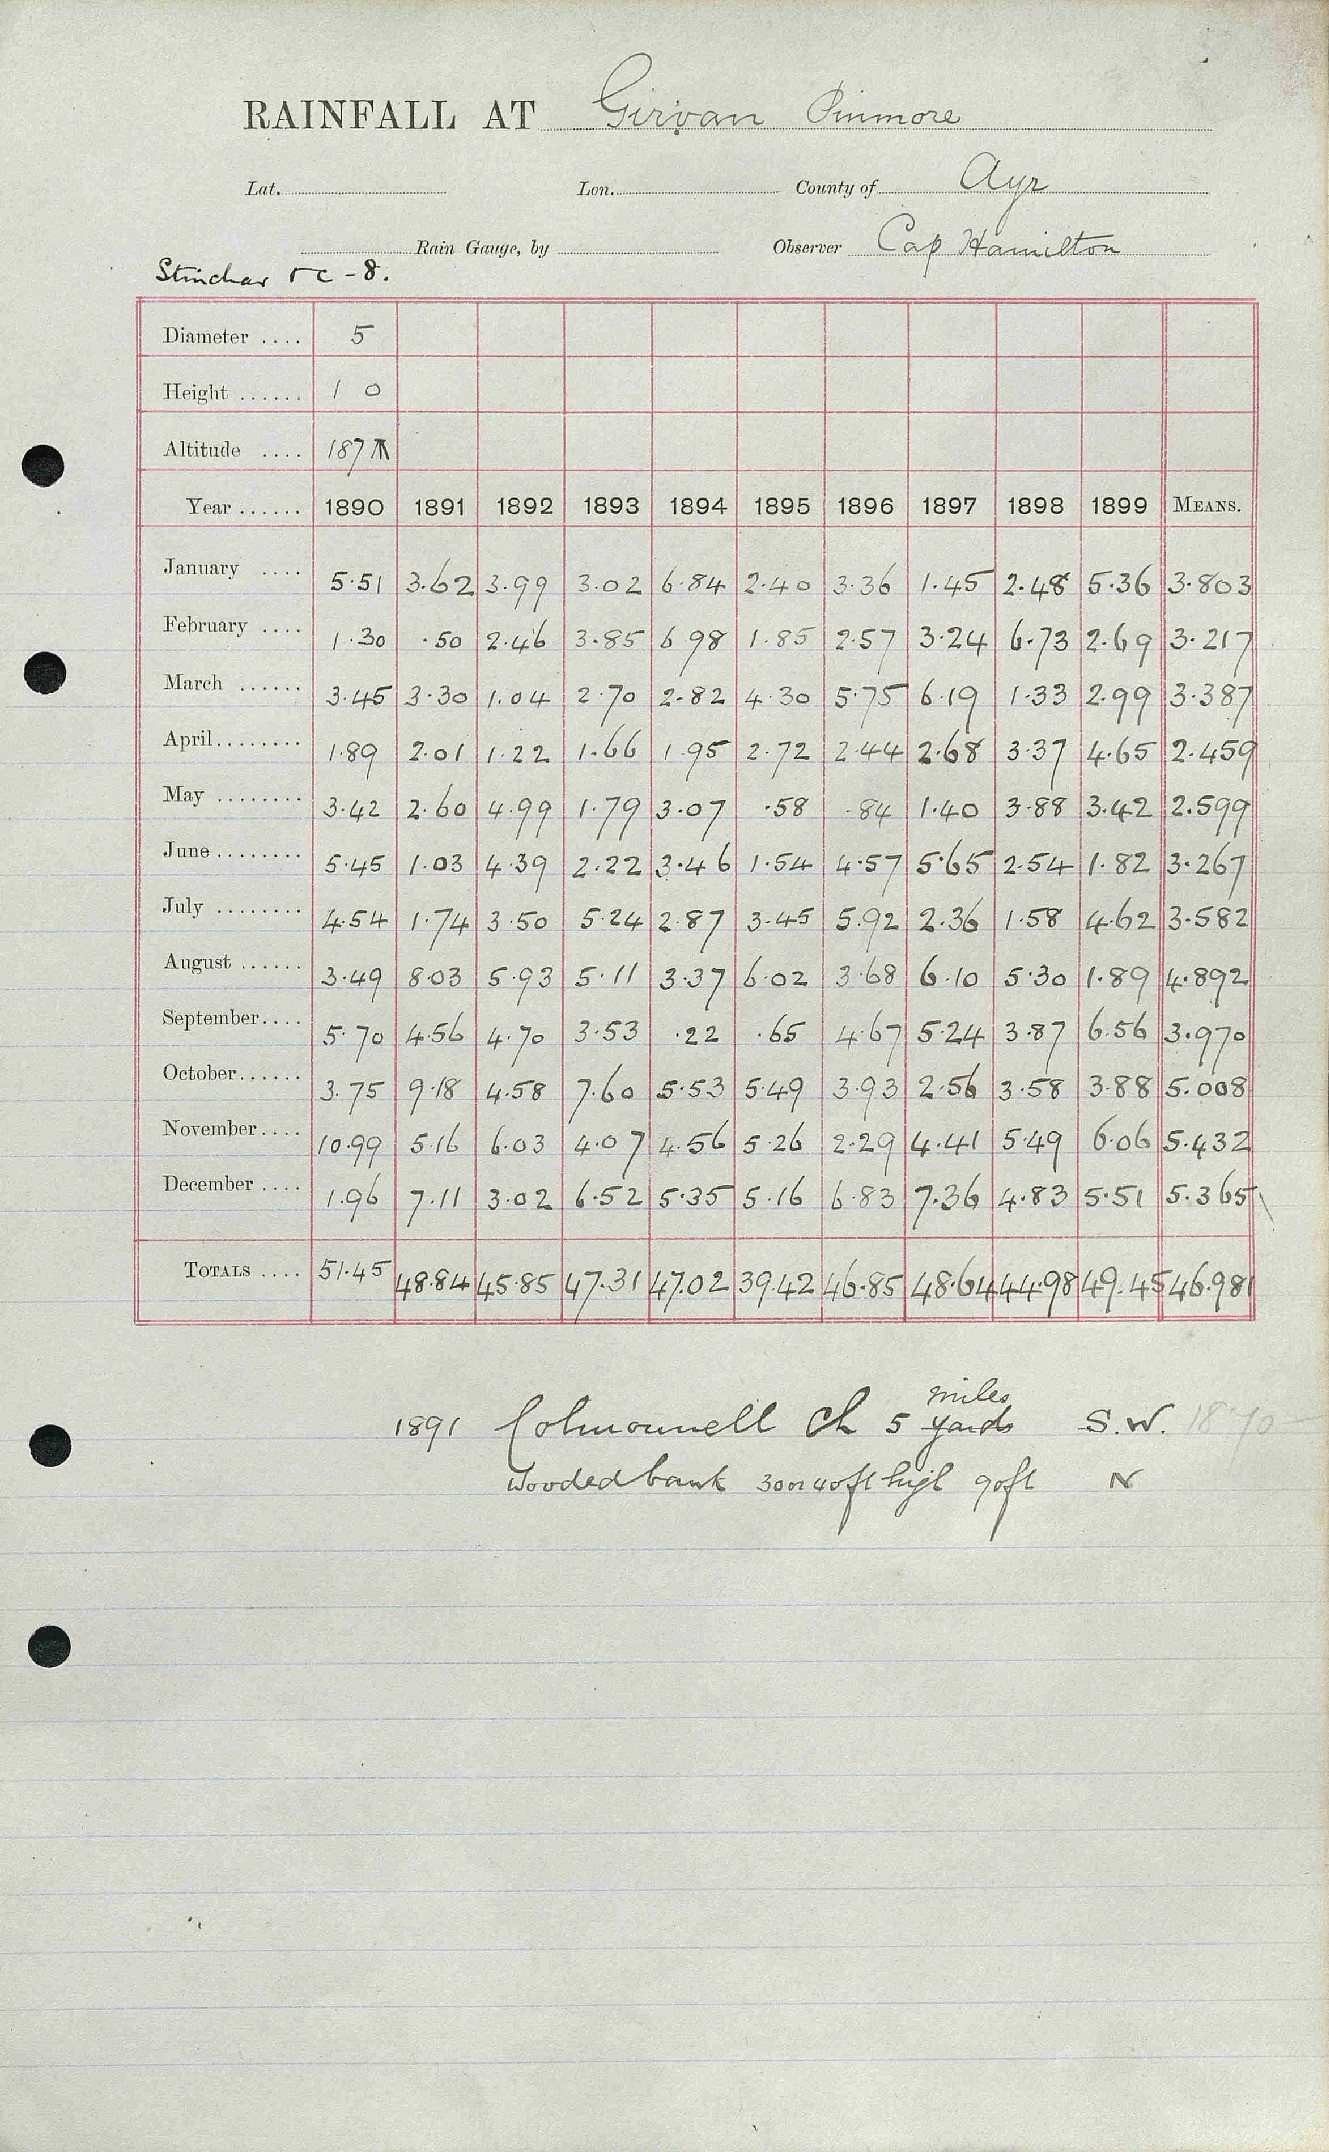 RAINFALL AT Girvan Pinmore
Lat. Lon. County of Ayr
Rain Gauge, by Observer Cap Hamilton
Stinchar - 8.
Diameter .... 5
Height ...... 1 0
Altitude .... 187
Year ...... 1890 1891 1892 1893 1894 1895 1896 1897 1898 1899 MEANS.
January .... 5.51 3.62 3.99 3.02 6.84 2.40 3.36 1.45 2.48 5.36 3.803
February .... 1.30 .50 2.46 3.85 6 98 1.85 2.57 3.24 6.73 2.69 3.217
March ...... 3.45 3.30 1.04 2.70 2.82 4.30 5.75 6.19 1.33 2.99 3.387
April........ 1.89 2.01 1.22 1.66 1.95 2.72 2.44 2.68 3.37 4.65 2.459
May ........ 3.42 2.60 4.99 1.79 3.07 .58 .84 1.40 3.88 3.42 2.599
June........ 5.45 1.03 4.39 2.22 3.46 1.54 4.57 5.65 2.54 1.82 3.267
July ........ 4.54 1.74 3.50 5.24 2.87 3.45 5.92 2.36 1.58 4.62 3.582
August ...... 3.49 8.03 5.93 5.11 3.37 6.02 3.68 6.10 5.30 1.89 4.892
September.... 5.70 4.56 4.70 3.53 .22 .65 4.67 5.24 3.87 6.56 3.970
October...... 3.75 9.18 4.58 7.60 5.53 5.49 3.93 2.56 3.58 3.88 5.008
November.... 10.99 5.16 6.03 4.07 4.56 5.26 2.29 4.41 5.49 6.06 5.432
December .... 1.96 7.11 3.02 6.52 5.35 5.16 6.83 7.36 4.83 5.51 5.365
TOTALS .... 51.45 48.84 45.85 47.31 47.02 39.42 46.85 48.64 44.98 49.45 46.981
miles
1891 Colmonnell Ch 5 yards S.W. 1870
Wooded bank 30 or 40 ft high 90 ft N